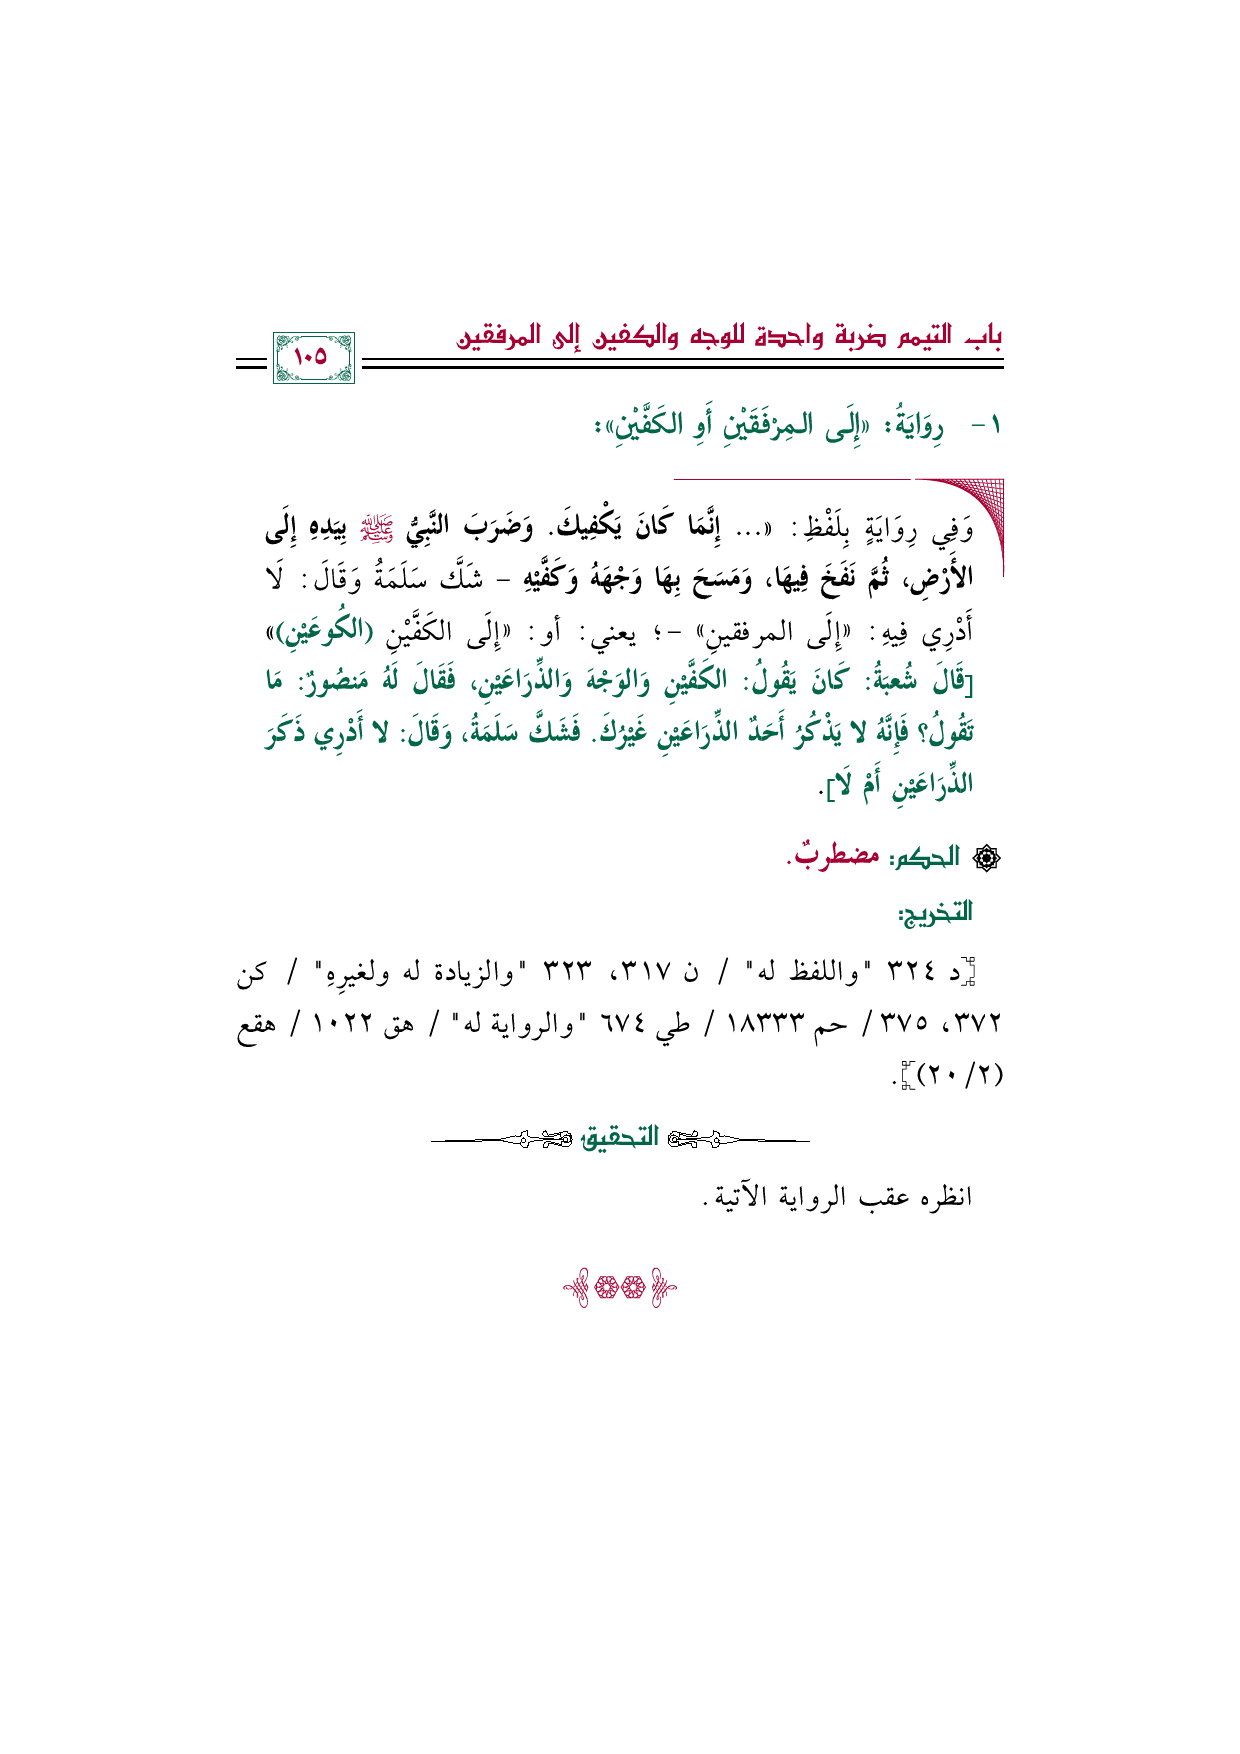 باب التيمم ضربة واحدة للوجه والكفين إلى المرفقين
١٠٥
١- رِوَايَةُ: «إِلَى المِرْفَقَيْنِ أَوِ الكَفَّيْنِ»:
وَفِي رِوَايَةٍ بِلَفْظِ: «... إِنَّمَا كَانَ يَكْفِيكَ. وَضَرَبَ النَّبِيُّ ﷺ بِيَدِهِ إِلَى
الأَرْضِ، ثُمَّ نَفَخَ فِيهَا، وَمَسَحَ بِهَا وَجْهَهُ وَكَفَّيْهِ - شَكَّ سَلَمَةُ وَقَالَ: لَا
أَدْرِي فِيهِ: «إِلَى المرفقينِ» -؛ يعني: أو: «إِلَى الكَفَّيْنِ (الكُوعَيْنِ)»
[قَالَ شُعبَةُ: كَانَ يَقُولُ: الكَفَّيْنِ وَالوَجْهَ وَالذِّرَاعَيْنِ، فَقَالَ لَهُ مَنصُورٌ: مَا
تَقُولُ؟ فَإِنَّهُ لا يَذْكُرُ أَحَدٌ الذِّرَاعَيْنِ غَيْرُكَ. فَشَكَّ سَلَمَةُ، وَقَالَ: لا أَدْرِي ذَكَرَ
الذِّرَاعَيْنِ أَمْ لَا].
الحكم: مضطربٌ.
التخريج:
[د ٣٢٤ "واللفظ له" / ن ٣١٧، ٣٢٣ "والزيادة له ولغيرِهِ" / كن
٣٧٢، ٣٧٥ / حم ١٨٣٣٣ / طي ٦٧٤ "والرواية له" / هق ١٠٢٢ / هقع
(٢٠/٢)].
التحقيق
انظره عقب الرواية الآتية.